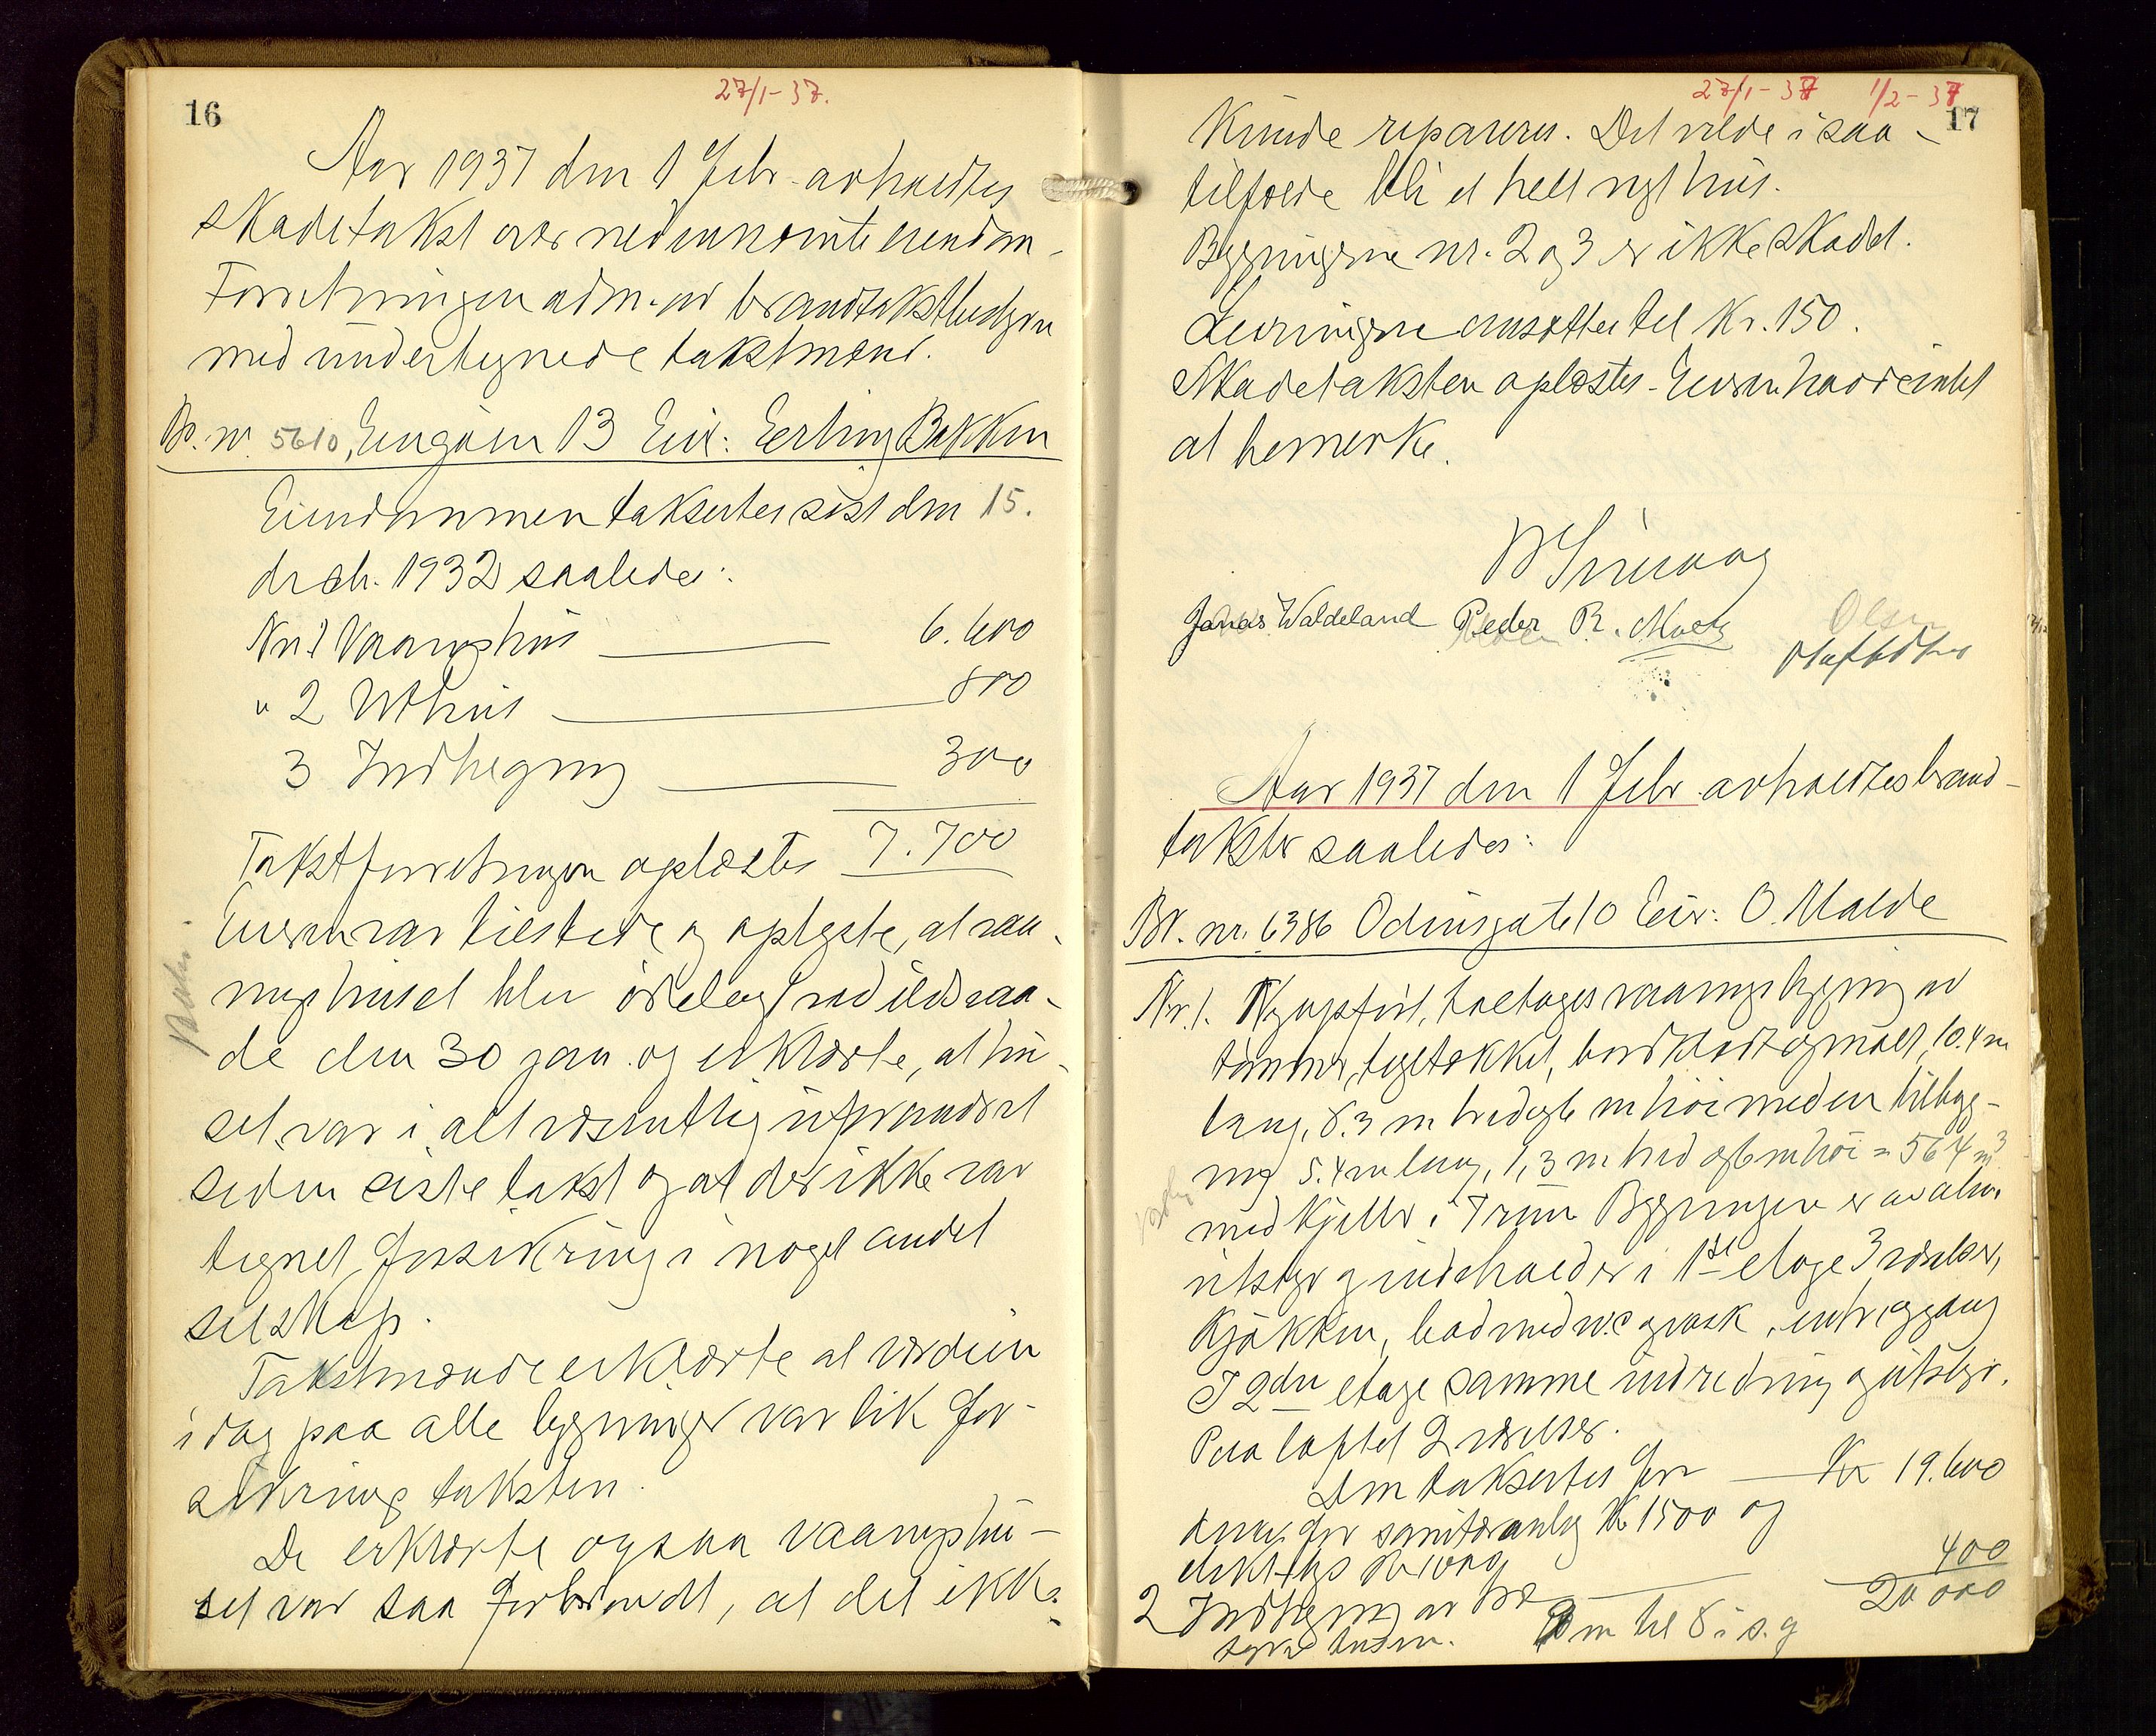 16
27/1-37.
Aar 1937 den 1 Febr. avholdtes
skadetakst over nedennævnte eiendom.
Forretningen adm. av brandtakstbestyreren
med undertegnede takstmænd.
Br. nr. 5610, Engöien 13 Eier: Erling Bakken
Eiendommen taksertes sist den 15.
decb. 1932 saaledes:
Nr. 1 Vaaningshus 6.600
" 2 Uthus 800
3 Indhegning 300
7.700
Takstforretningen oplæstes
Eieren var tilstede og oplyste, at vaa-
ningshuset blev ödelagt ved ildsvaa-
de den 30 jan. og erklærte, at hu-
set var i alt væsentlig uforandret
siden siste takst og at der ikke var
tegnet forsikring i noget andet
selskap.
Takstmændene erklærte at værdien
i dag paa alle bygninger var lik for-
sikrings taksten.
De erklærte ogsaa vaaningshu-
set var saa forbrændt, at det ikke
27/1-37 1/2-37
17
kunde repareres. Det vilde i saa-
tilfælde bli et helt nyt hus.
Bygningerne nr. 2 og 3 er ikke skadet.
Levningerne ansattes til Kr. 150.
Skadetaksten oplæstes. Eieren hadde intet
at bemerke.
Jonas Waldeland Peder R.
Olsen
Aar 1937 den 1 Febr. avholdtes brand-
takster saaledes:
Br. nr. 6386 Odinsgate 10 Eier: O. Malde
Nr. 1. Nyopfört, toetages vaaningsbygning av
tömmer, tegltækket, bordklædt og malt, 10.4 m
lang, 8.3 m bred og 6 m höi med en tilbyg-
ning 5.4 m lang, 1,3 m bred og 6 m höi = 564 m3
med kjelder i Bygningen er av alm.
utstyr og indeholder i 1ste etage 3 værelser,
kjökken, bad med w.c. og vask, entre og gang
I 2den etage samme indredning og utstyr.
Paa loftet 2 værelser.
Den taksertes for Kr 19.600
herav for sanitæranlæg Kr 1500 og
2 Indhegning av 400
20 000